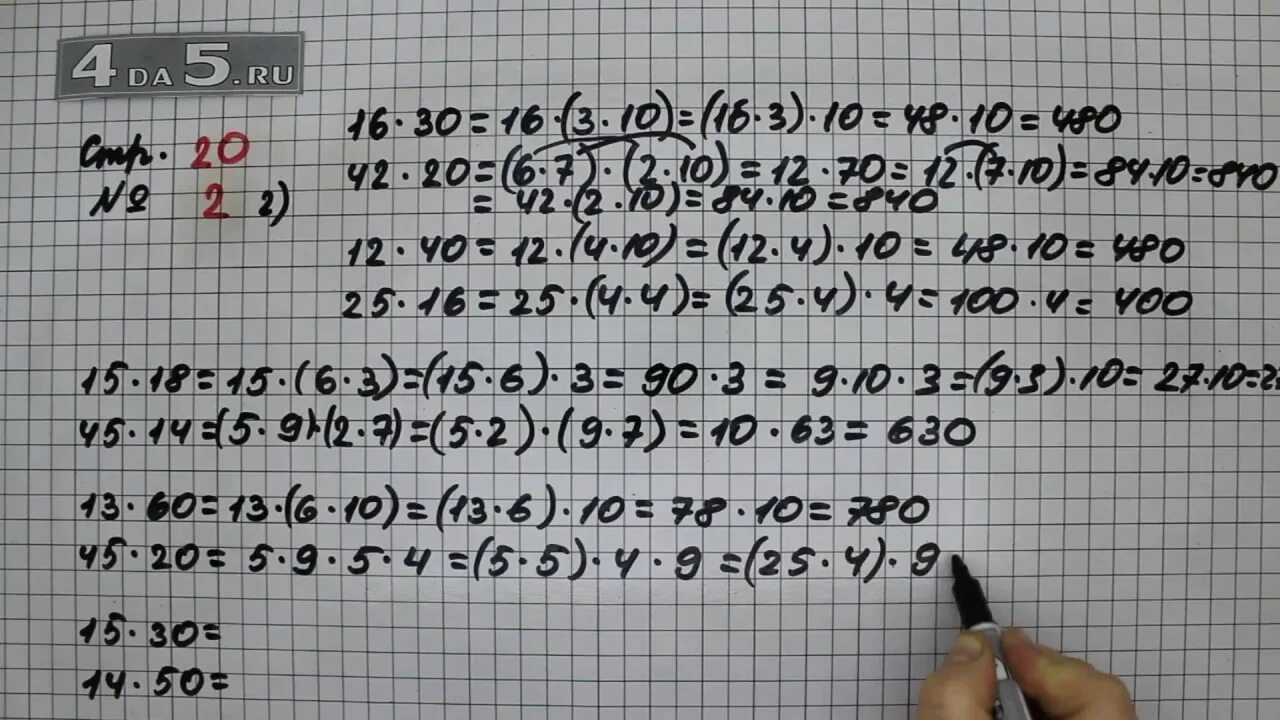 4DA5.RU
Стр. 20
№ 2 2)
16·30=16·(3·10)=(16·3)·10=48·10=480
42·20=(6·7)·(2·10)=12·70=12·(7·10)=84·10=840
=42·(2·10)=84·10=840
12·40=12·(4·10)=(12·4)·10=48·10=480
25·16=25·(4·4)=(25·4)·4=100·4=400
15·18=15·(6·3)=(15·6)·3=90·3=9·10·3=(9·3)·10=27·10=2
45·14=(5·9)·(2·7)=(5·2)·(9·7)=10·63=630
13·60=13·(6·10)=(13·6)·10=78·10=780
45·20=5·9·5·4=(5·5)·4·9=(25·4)·9
15·30=
14·50=